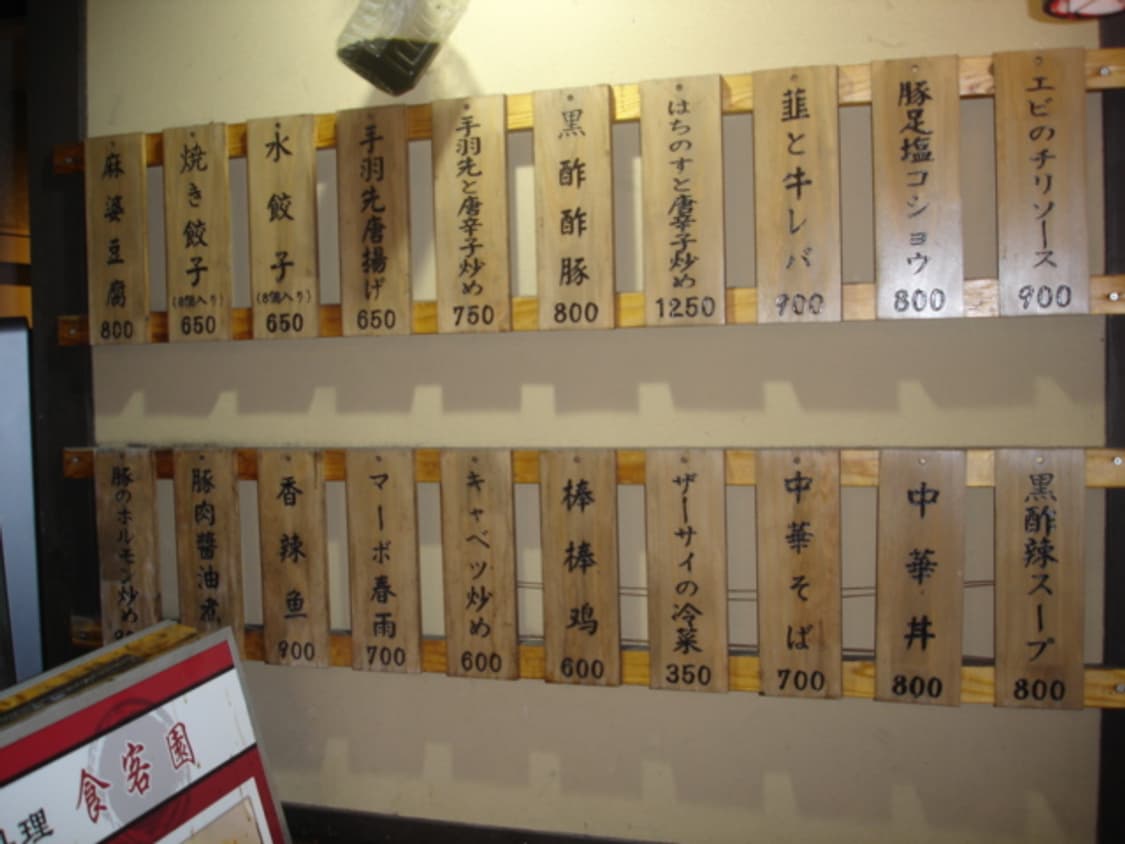 エビのチリソース
900
豚足塩コショウ
800
韮と牛レバ
900
はちのすと唐辛子炒め
1250
黒酢酢豚
800
手羽先と唐辛子炒め
750
手羽先唐揚げ
650
水餃子
(8個入り)
650
焼き餃子
(8個入り)
650
麻婆豆腐
800
黒酢辣スープ
800
中華丼
800
中華そば
700
ザーサイの冷菜
350
棒棒鸡
600
キャベツ炒め
600
マーボ春雨
700
香辣鱼
900
豚肉醬油煮
豚のホルモン炒め
理 食客園